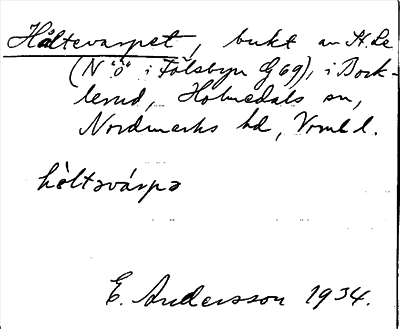 Håltevarpet, bukt av St. Le
(N "ö" i Fölsbyn G 69), i Bock-
lerud, Holmedals sn,
Nordmarks hd, Vrml l.
hòltəvárpə
E. Andersson 1934.